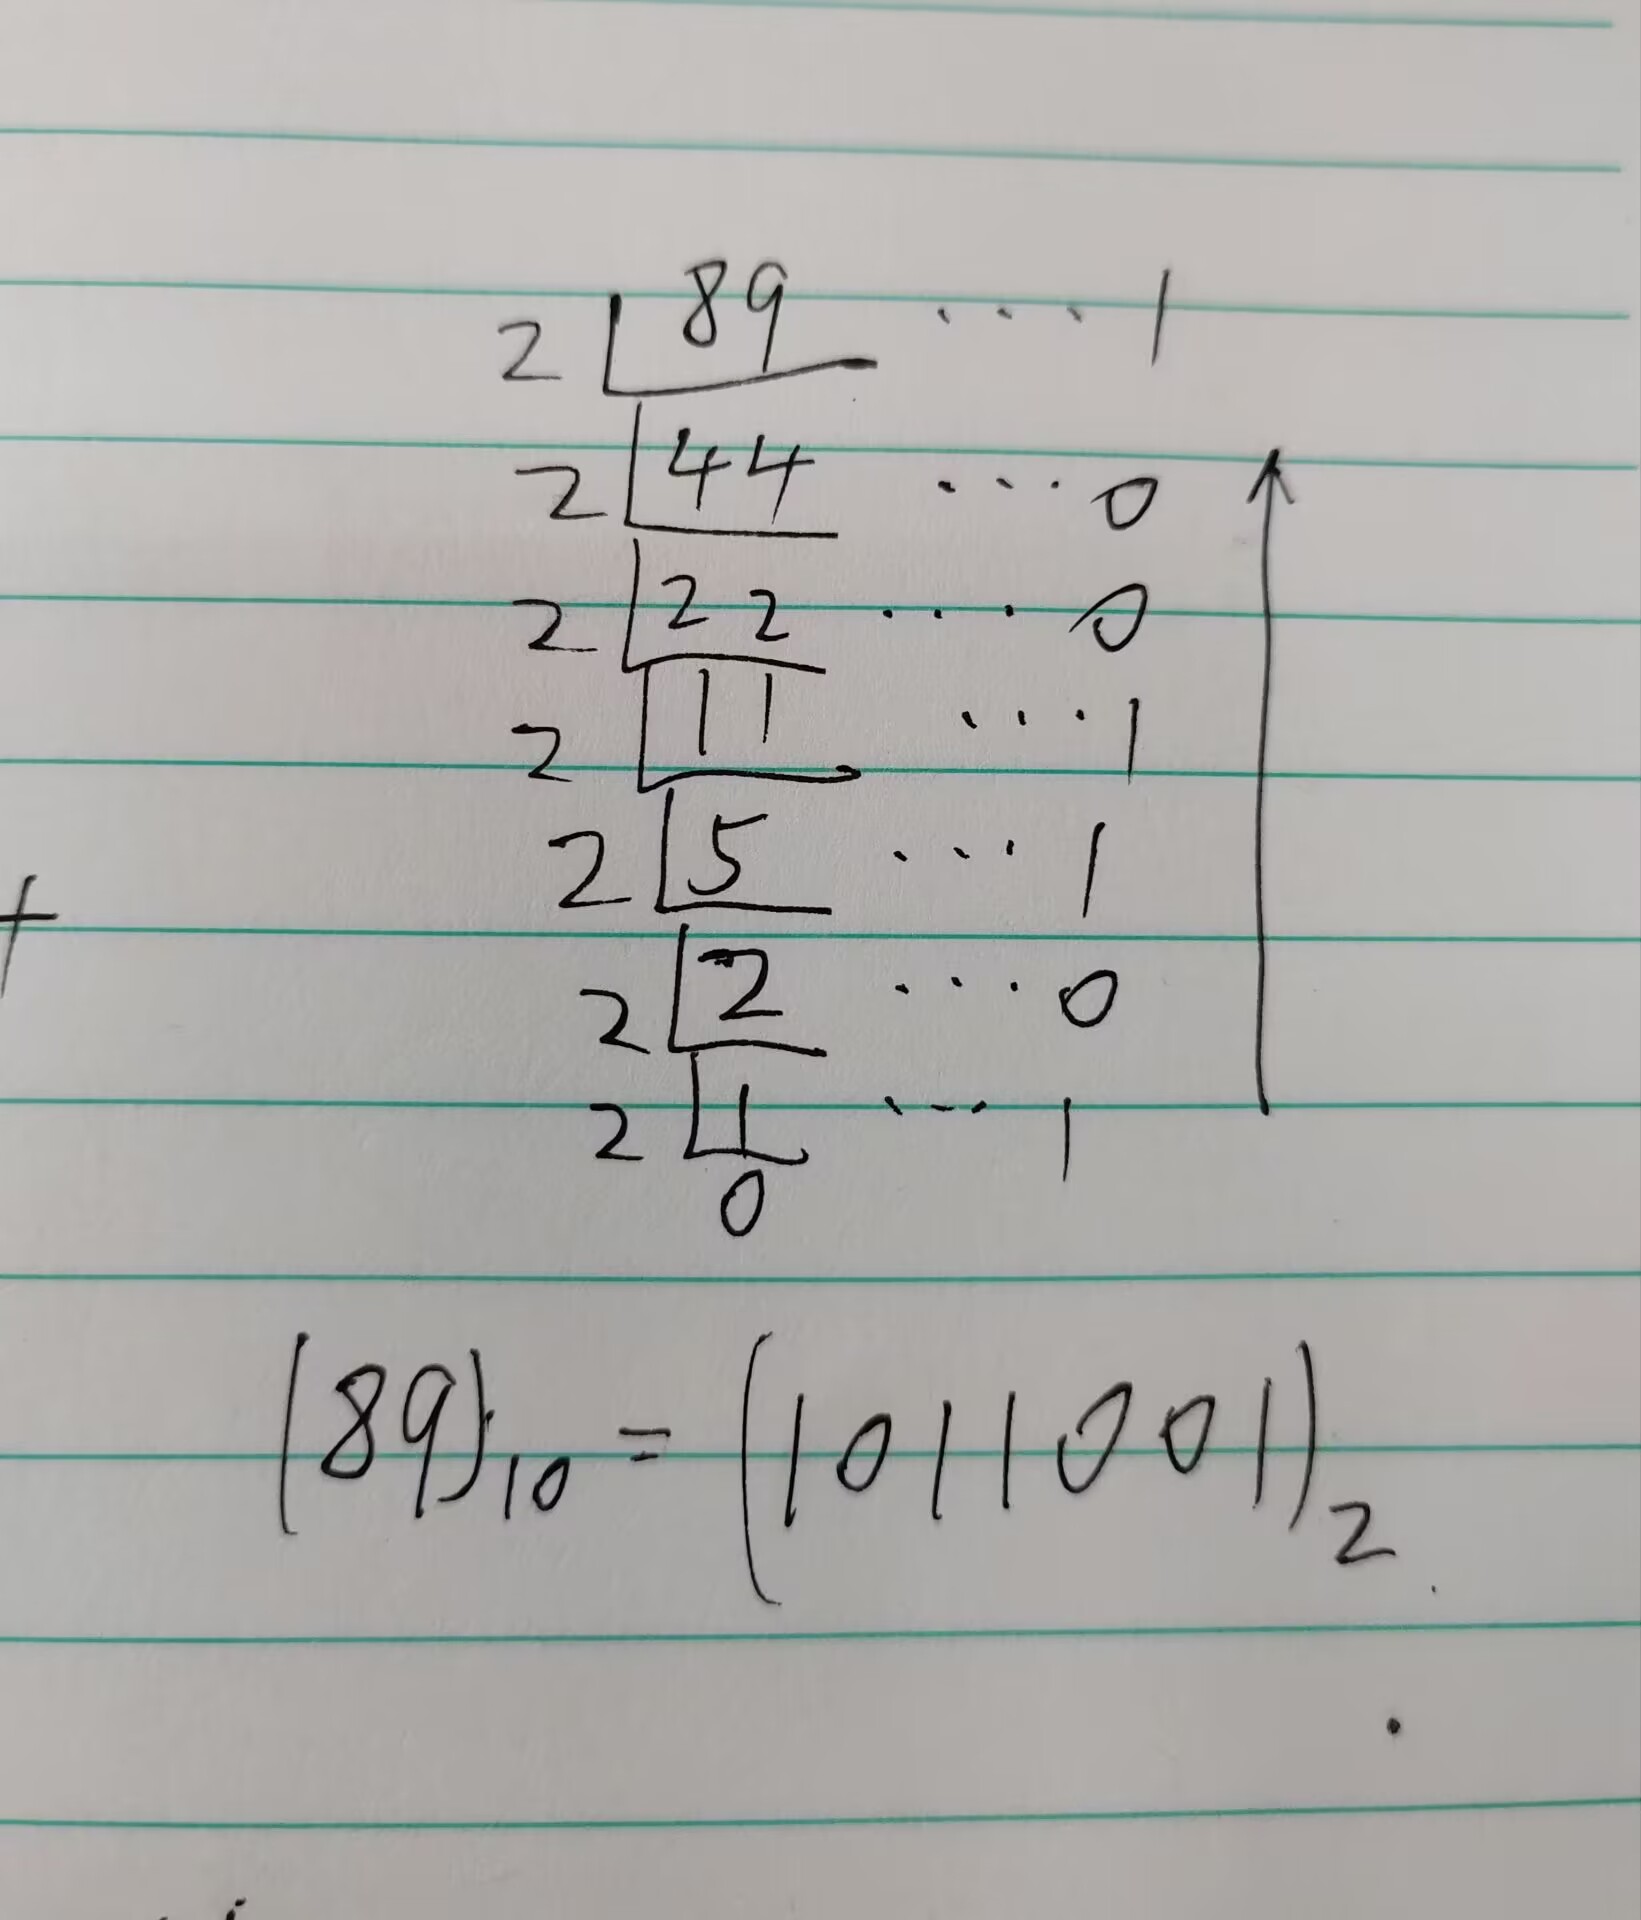 2 89 ... 1
2 44 ... 0
2 22 ... 0
2 11 ... 1
2 5 ... 1
2 2 ... 0
2 1 ... 1
0
+
(89)10 = (1011001)2